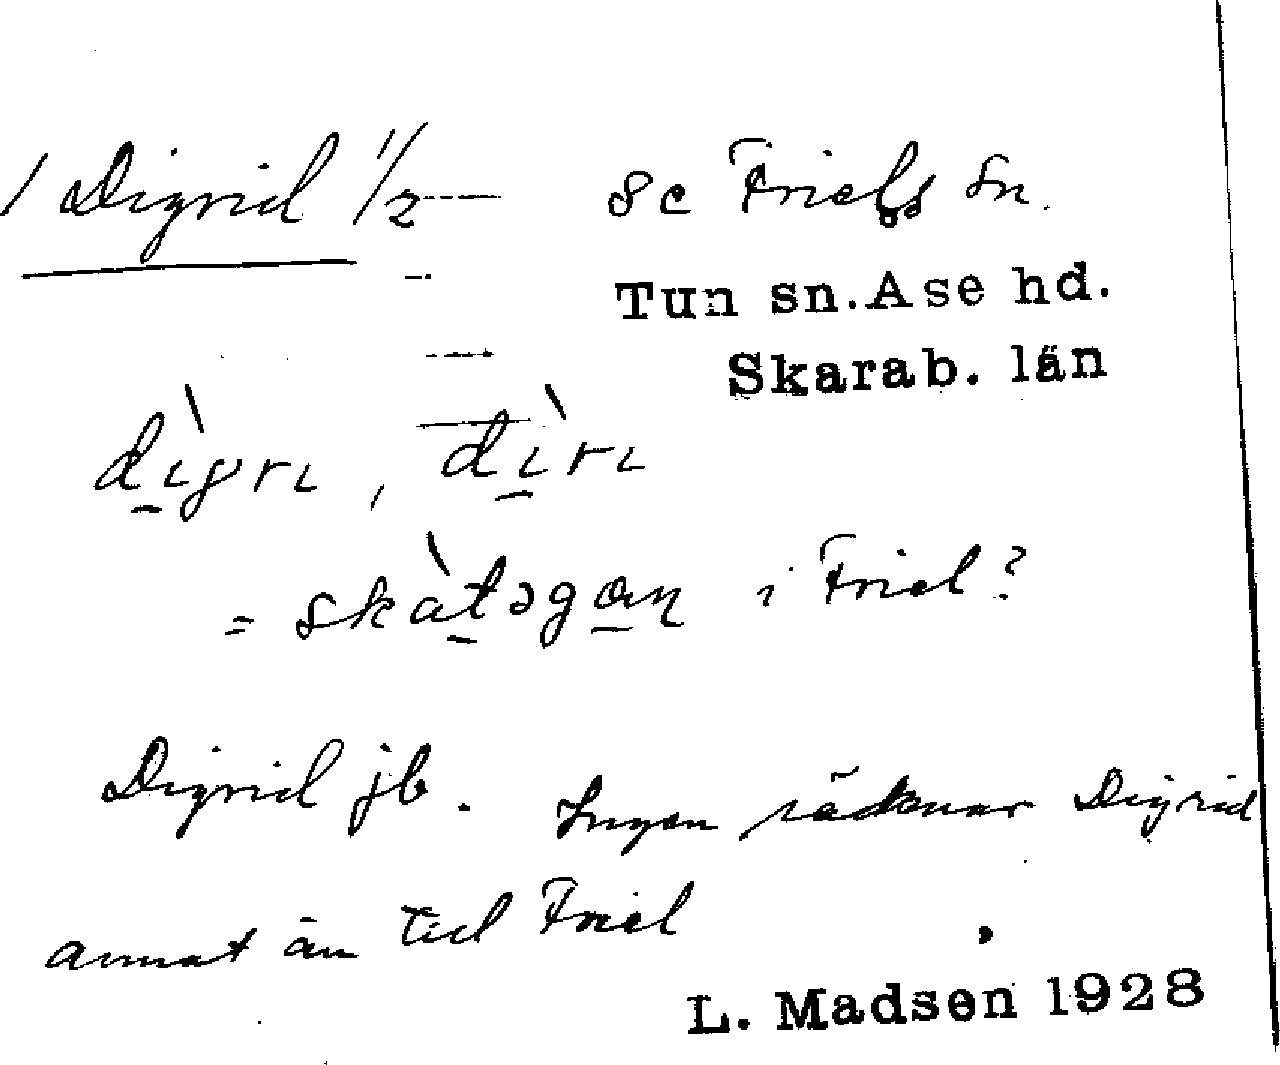 1 Digrid 1/2 se Friels sn.
Tun sn. Åse hd.
Skarab. län
dìgrɩ, dìrɩ
= skàtəgan i Friel?
Digrid jb. Ingen räknar Digrid
annat än till Friel
L. Madsen 1928